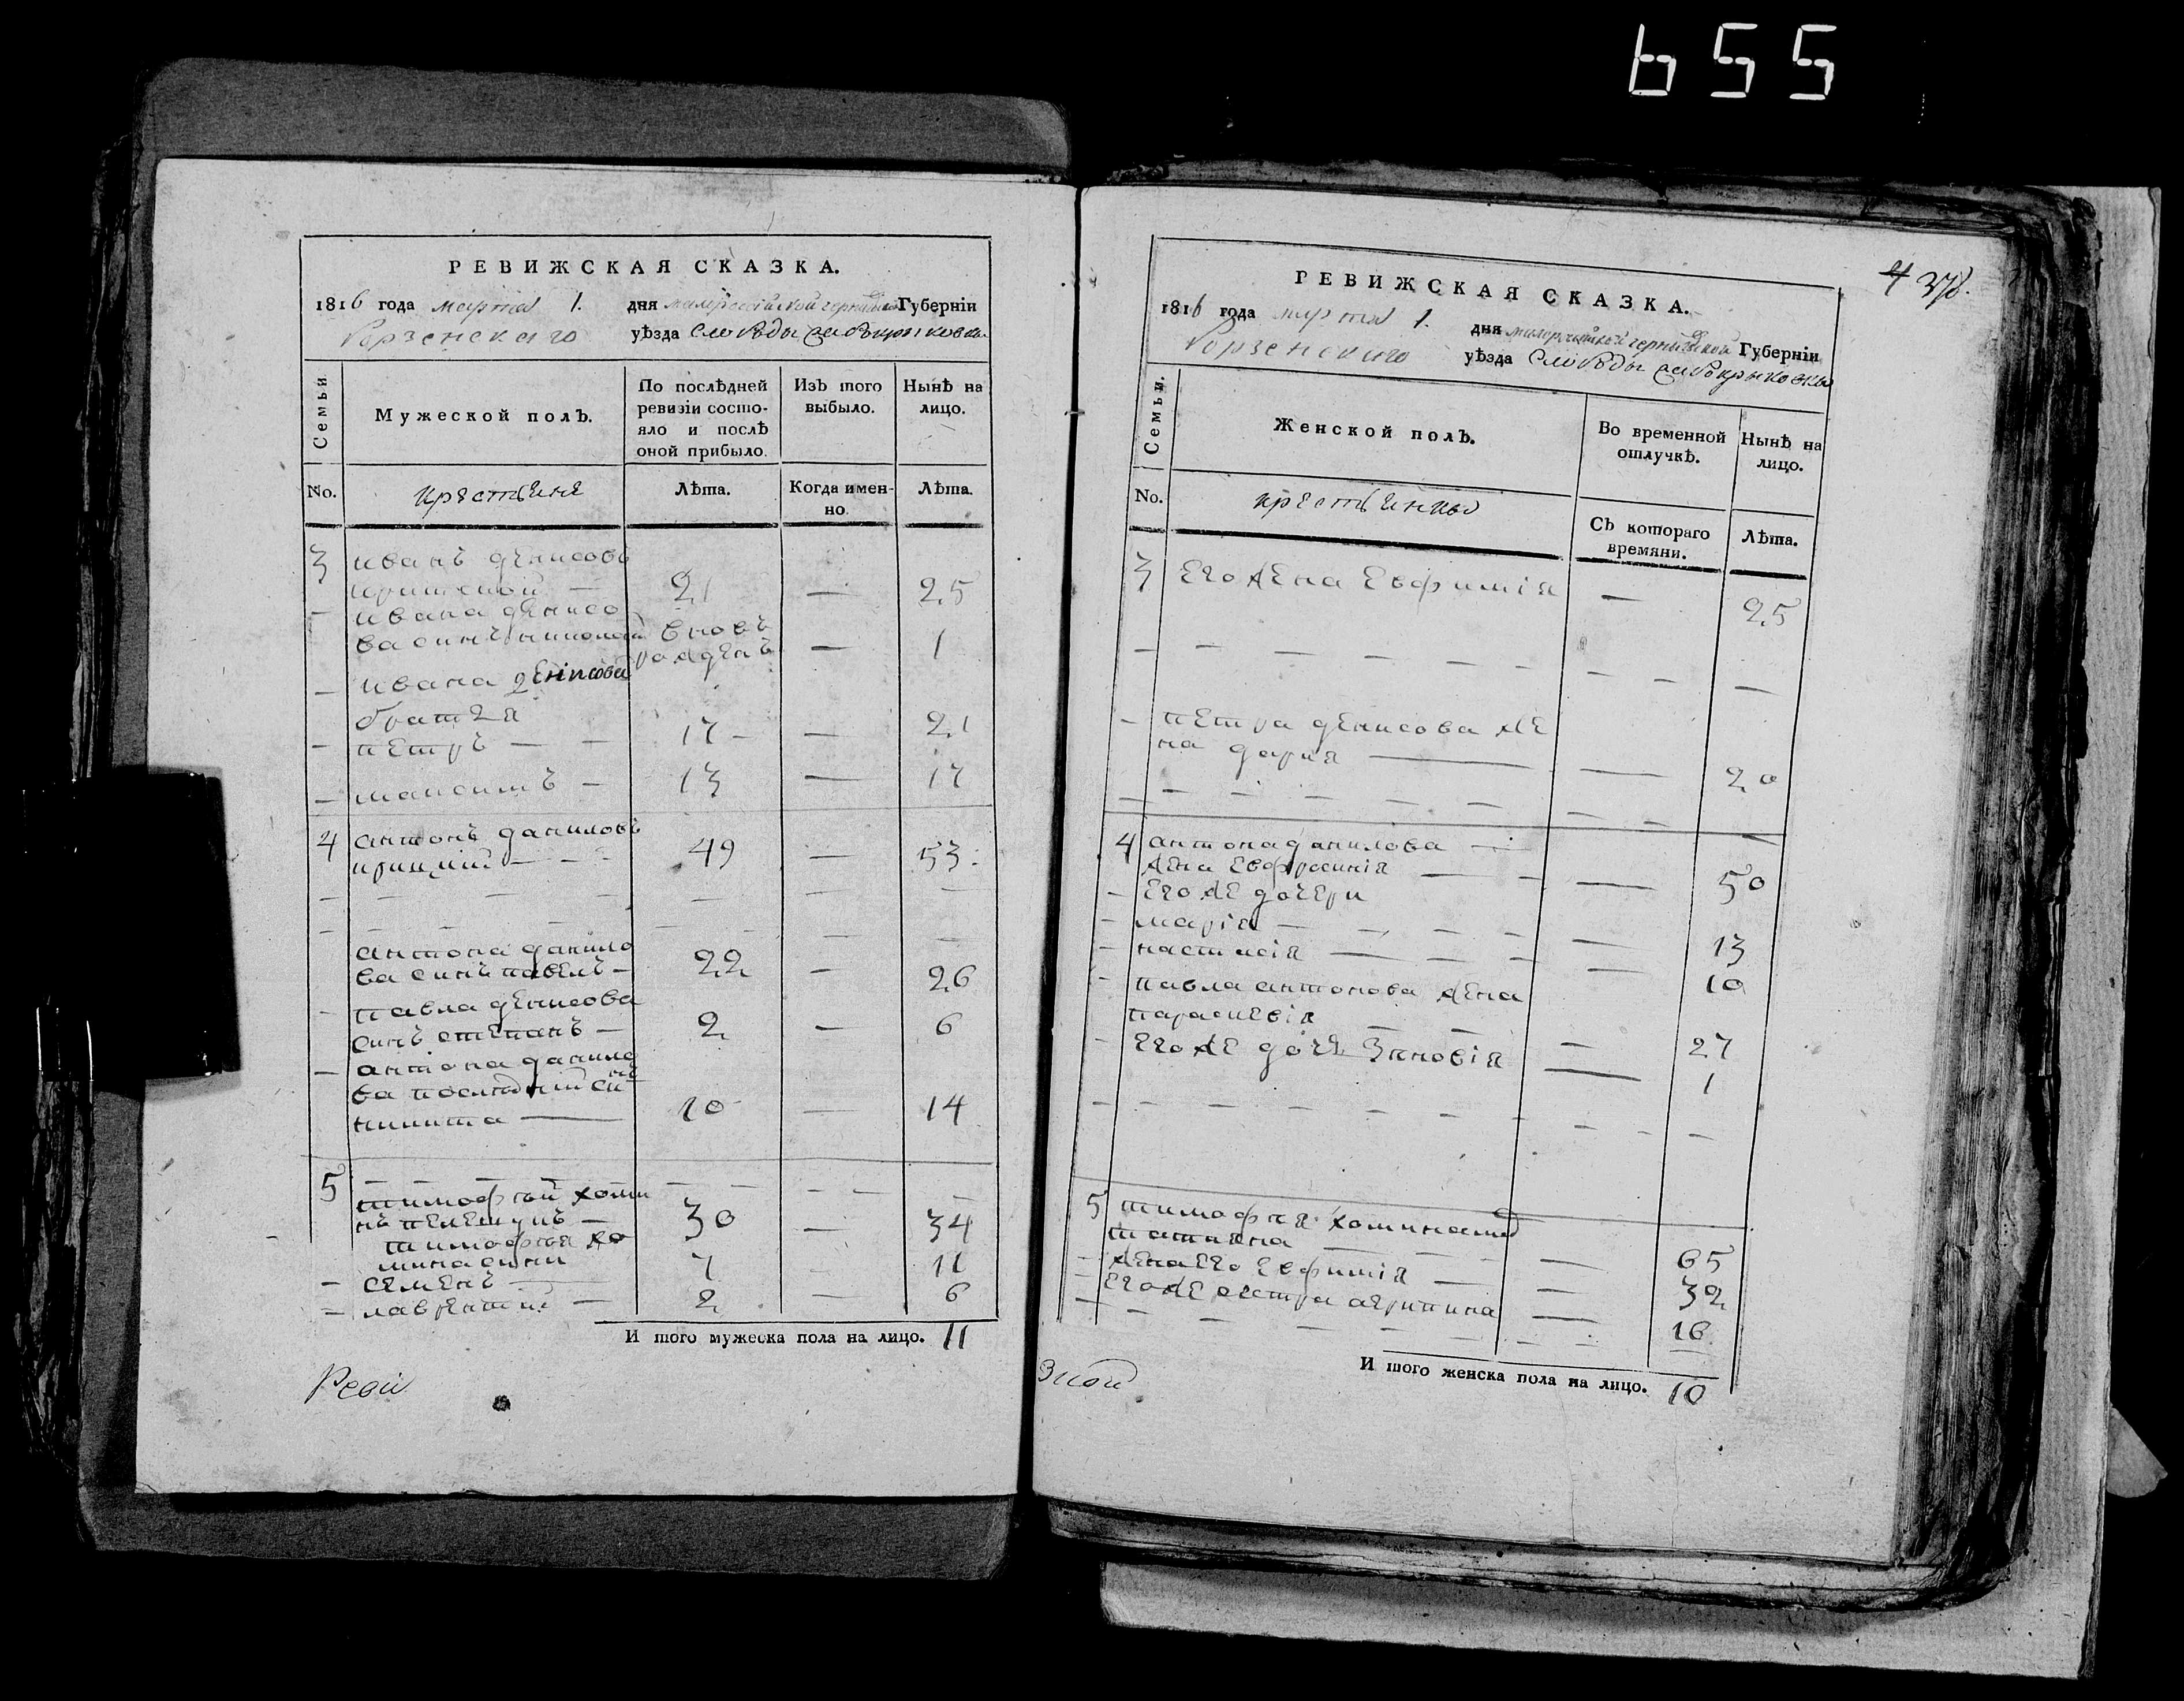 655
РЕВИЖСКАЯ СКАЗКА.
1816 года марта 1. дня малороссійской черниговской Губерніи
Борзенского уѣзда Слободы
Семьи
Мужеской полъ.
По послѣдней ревизіи состояло и послѣ оной прибыло.
Изъ того выбыло.
Нынѣ на лицо.
No.
крестьяне
Лѣта.
Когда именно.
Лѣта.
3 иванъ денисовъ
21 — 25
ивана денисо
ва синъ николай вновь рожденъ — 1
— ивана денисова
братья
— петръ — — 17 — — 21
— максимъ — 13 — 17
4 антонъ даниловъ
49 — 53
антона данило
ва синъ павелъ — 22 — 26
— павла денисова
синъ степанъ — 2 — 6
— антона данило
ва последний синъ
никита — 10 — 14
5
тимофѣй хоми
нъ — 30 — 34
тимофѣя хо
мина сини
— семенъ — 7 — 11
— лаврентий — 2 — 6
И того мужеска пола на лицо. 11
Реви
4 378.
РЕВИЖСКАЯ СКАЗКА.
1816 года марта 1. дня малороссійской черниговской Губерніи
Борзенского уѣзда Слободы
Семьи.
Женской полъ.
Во временной отлучкѣ.
Нынѣ на лицо.
No.
крестьянки
Съ котораго времяни.
Лѣта.
3 Его жена Евфимія — 25
— петра денисова же
на дария — — 20
4 антона данилова
жена Евфросинія — — 50
— Его же дочери
— марія — — 13
— настасія — — 10
— павла антонова жена
параскевія — — 27
— Его же дочь Зиновія — 1
5 тимофѣя хомина мат
татияна — 65
— жена Его Евфимія — — 32
— Его же сестра агрипина — 16
И того женска пола на лицо. 10